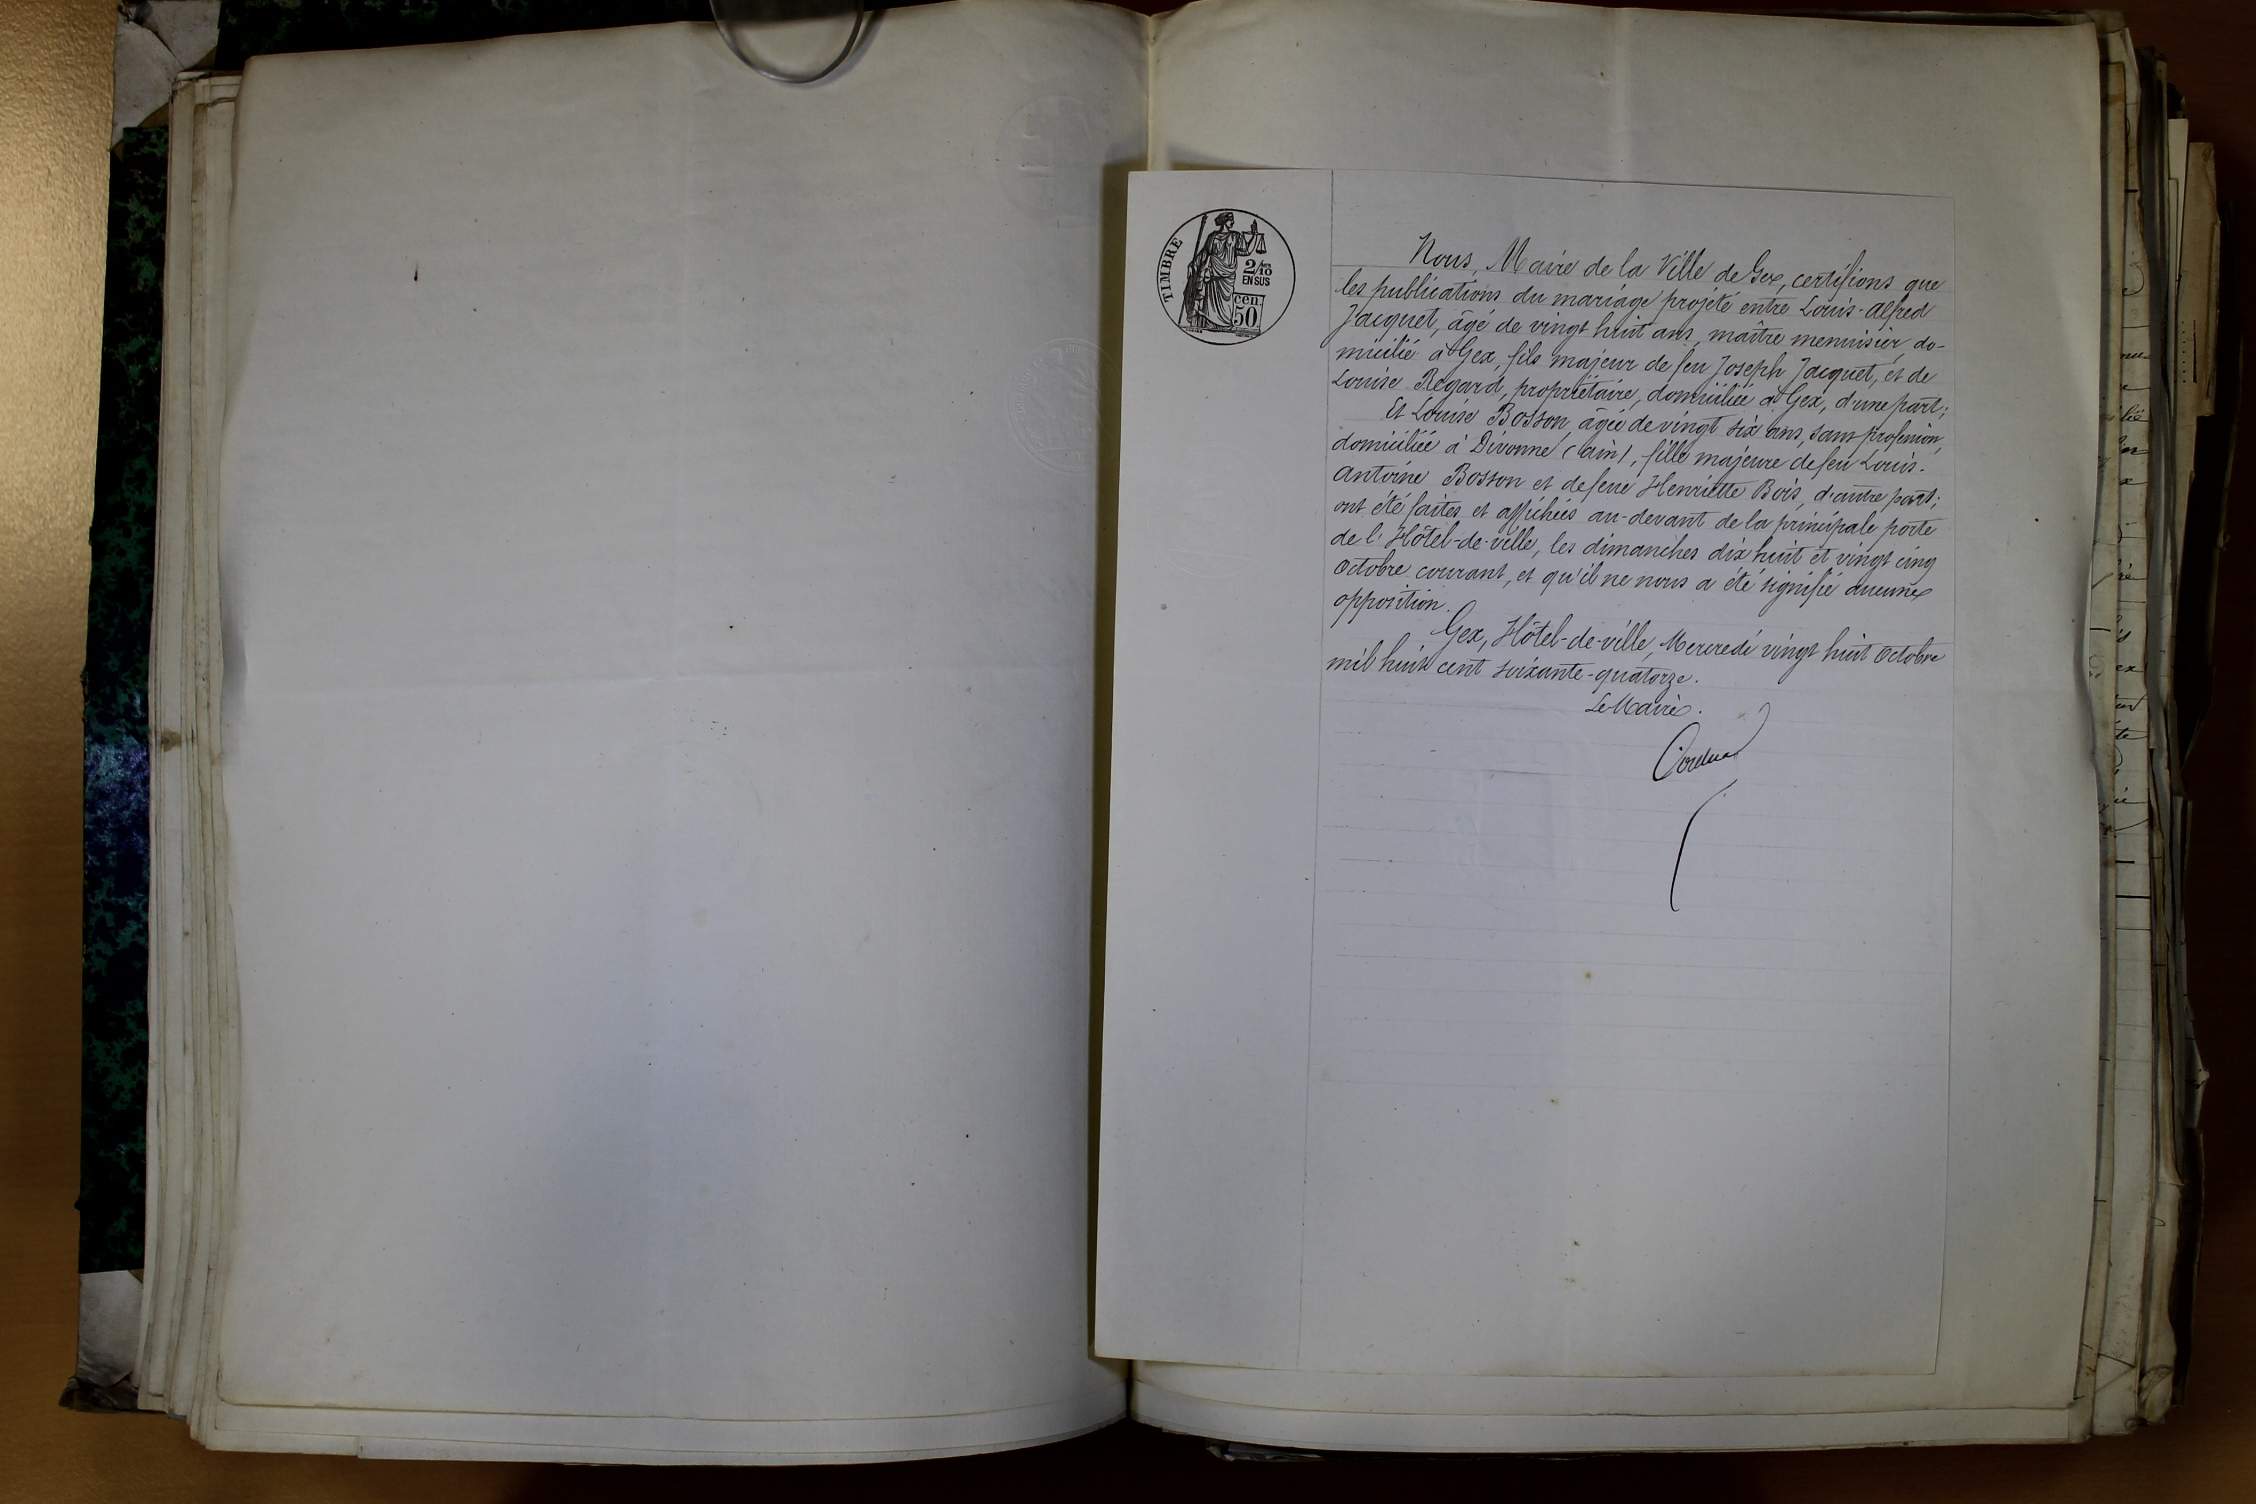 TIMBRE
2/10
EN SUS
cen
50
Nous, Maire de la Ville de Gex, certifions que
les publications du mariage projeté entre Louis-Alfred
Jacquet, âgé de vingt huit ans, maître menuisier, do-
micilié à Gex, fils majeur de feu Joseph Jacquet, et de
Louise Regard, propriétaire, domiciliée à Gex, d'une part;
Et Louise Bosson, âgée de vingt six ans, sans profession,
domiciliée à Divonne (Ain), fille majeure de feu Louis-
Antoine Bosson et de feue Henriette Bois, d'autre part;
ont été faites et affichées au-devant de la principale porte
de l'Hôtel-de-ville, les dimanches dix huit et vingt cinq
Octobre courant, et qu'il ne nous a été signifié aucune
opposition.
Gex, Hôtel-de-ville, Mercredi vingt huit Octobre
mil huit cent soixante-quatorze.
Le Maire.